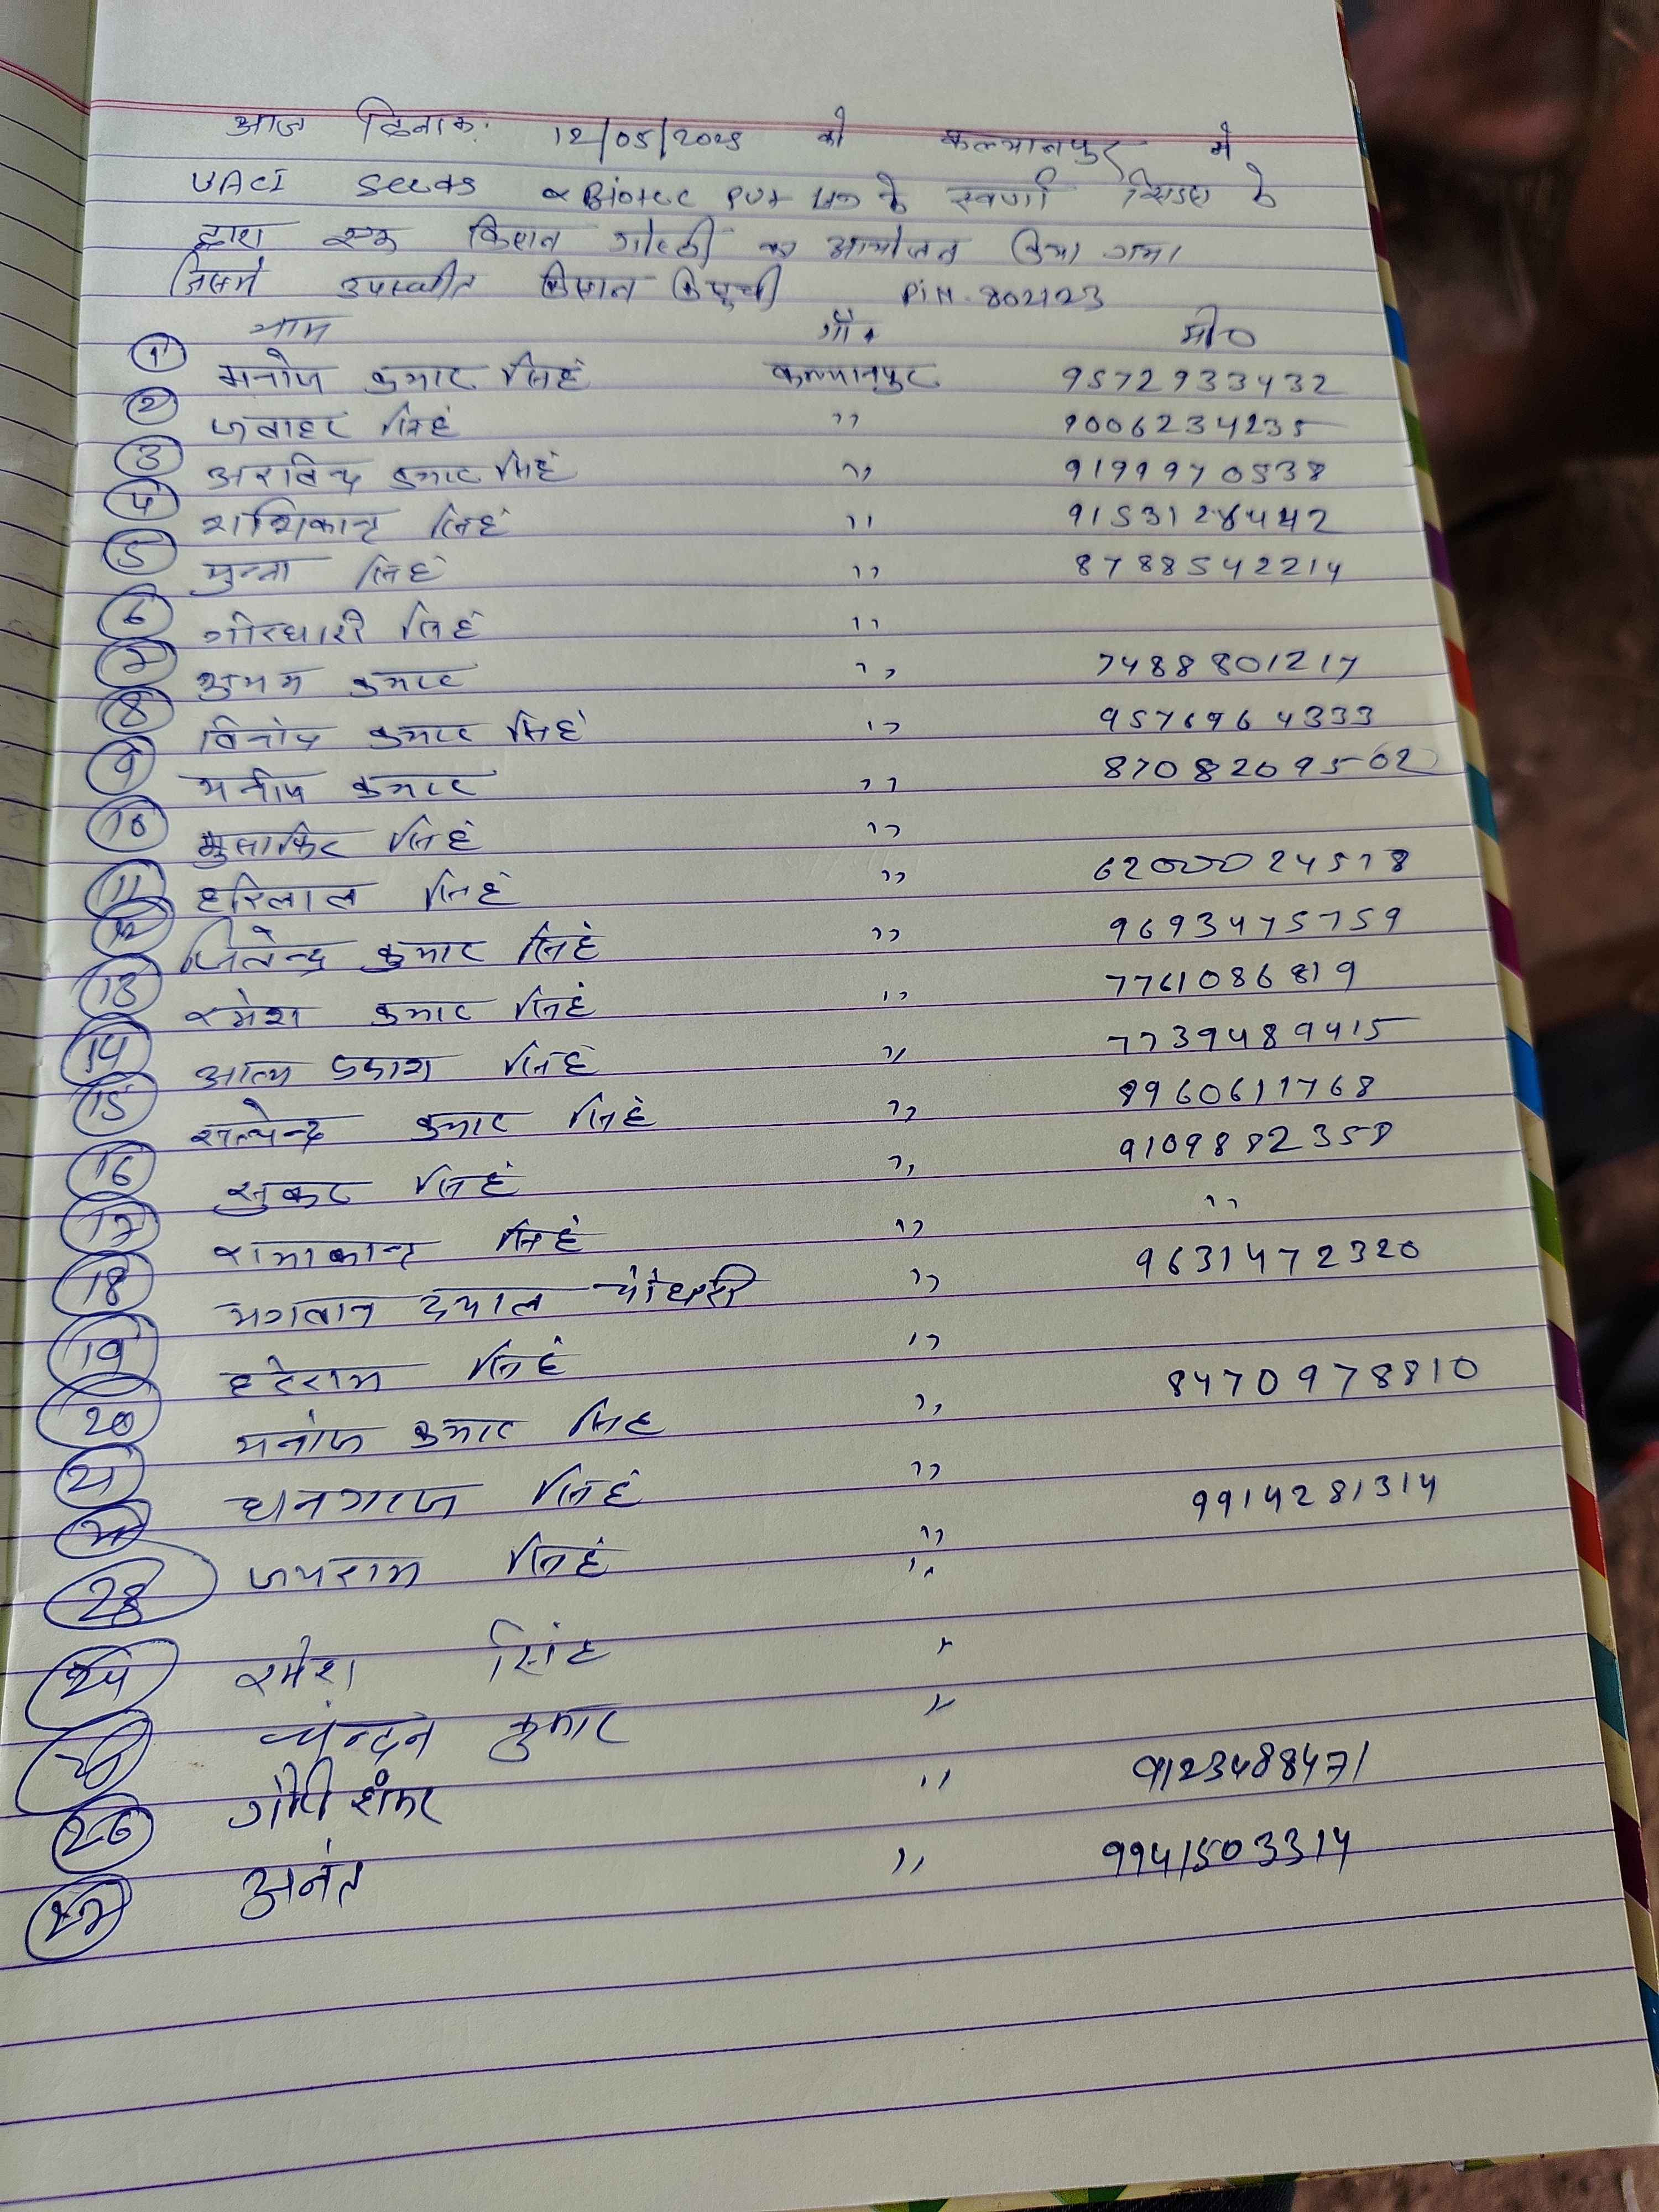 आज दिनांक. 12/05/2025 को कल्यानपुर मे
UACI Seeds & Biotec Pvt Ltd के स्वर्णा सिड्स के
द्वारा एक किसान गोष्ठी का आयोजन किया गया।
जिसमे उपस्थीत किसान कि सूची PiN. 802123
नाम गाँ. मो०
① मनोज कुमार सिहं कल्यानपुर 9572933432
② जवाहर सिहं ,, 9006234235
③ अरविन्द कुमार सिहं ,, 9199970538
④ शशिकान्त सिहं ,,
⑤ मुन्ना सिहं ,, 8788542214
⑥ गोरधारी सिहं ,,
⑦ शुभम कुमार ,, 7488801217
⑧ विनोद कुमार सिहं ,, 9576964333
⑨ मनोज कुमार ,, 87082095
⑩ मुसाफिर सिहं ,,
⑪ हरिलाल सिहं ,,
⑫ जितेन्द्र कुमार सिहं ,, 9693475759
⑬ रमेश कुमार सिहं ,, 7761086819
⑭ आत्म प्रकाश सिहं ,, 7739489415
⑮ सत्येन्द्र कुमार सिहं ,, 8960611768
⑯ सिहं ,, 9109882358
⑰ रामाकान्त सिहं ,, ,,
⑱ भगवान दयाल चौधरी ,, 9631472320
⑲ हरेराम सिहं ,,
⑳ मनोज कुमार सिह ,, 8470978810
㉑ सिहं ,,
जयराम सिहं ,, 9914281314
㉓ ,,
㉔ रमेश सिंह ,,
चन्दन कुमार ,,
㉖ गौरी शंकर ,, 9123488471
㉗ अनंत ,, 9941503314